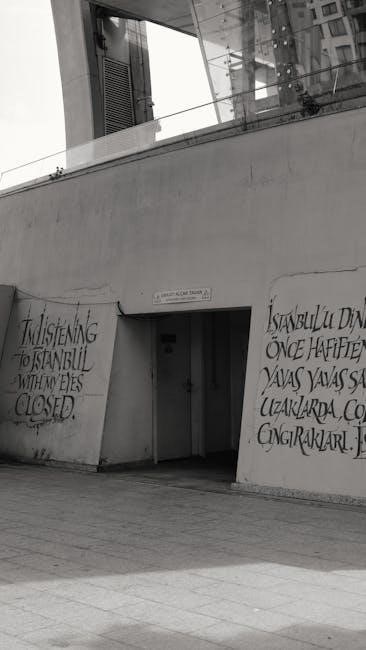 I'M LISTENING
TO ISTANBUL
WITH MY EYES
CLOSED.
DİKKAT ALÇAK TAVAN
İSTANBUL'U DİN
ÖNCE HAFİFTEN
YAVAŞ YAVAŞ SA
UZAKLARDA, ÇO
ÇINGIRAKLARI.